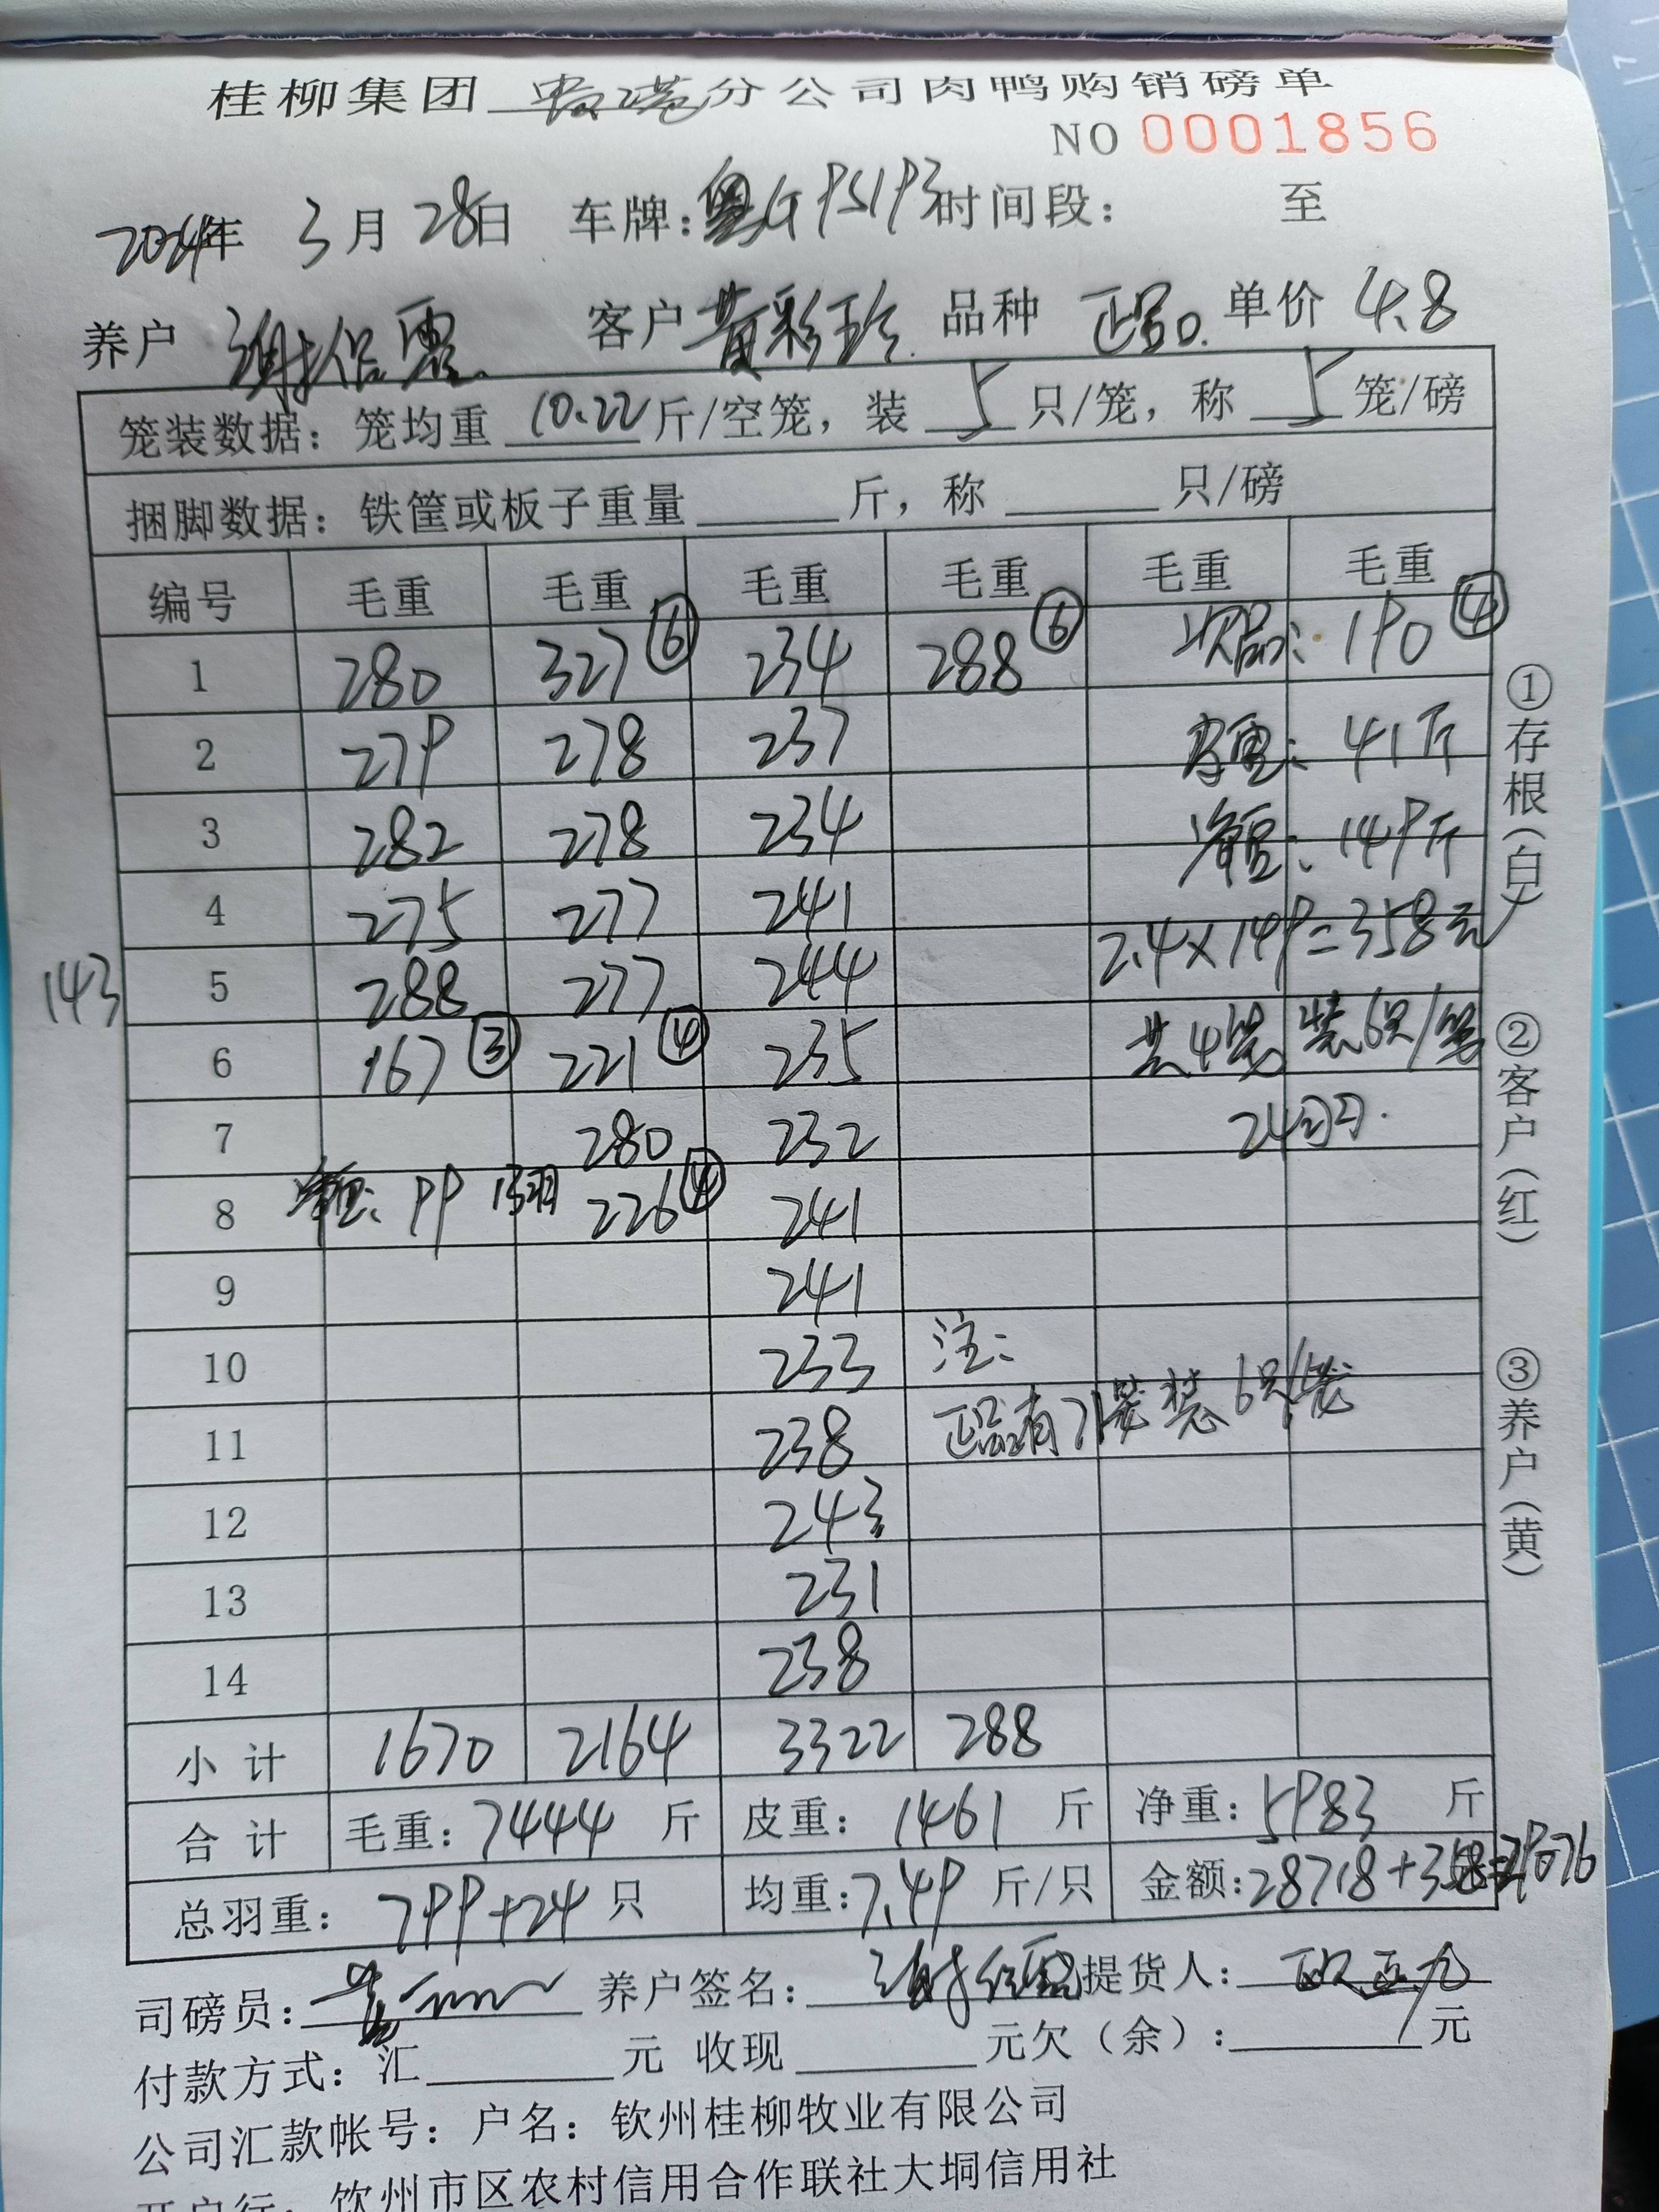 桂柳集团 分公司肉鸭购销磅单
NO 0001856
2024年 3月28日 车牌:粤G P51P3 时间段: 至
养户 谢保 客户 黄彩珍 品种 正品 单价 4.8
笼装数据: 笼均重 10.22 斤/空笼, 装 5 只/笼, 称 5 笼/磅
捆脚数据: 铁筐或板子重量 斤, 称 只/磅
编号 毛重 毛重 毛重 毛重 毛重 毛重
1 280 327⑥ 234 288⑥ 次品: 190④
2 279 278 237 皮重: 41斤
3 282 278 234 净重: 149斤
4 275 277 241 2.4×149=358元
143 5 288 277 244
6 167③ 221④ 235 共4笼 装6只/笼
7 280 232 24羽.
8 净重: 99 15羽 226④ 241
9 241
10 233 注:
11 238 正品有71笼装6只/笼
12 243
13 231
14 238
小计 1670 2164 3322 288
合计 毛重: 7444 斤 皮重: 1461 斤 净重: 5983 斤
总羽重: 799+24 只 均重: 7.49 斤/只 金额: 28718+358=29076
司磅员: 养户签名: 谢 提货人: 欧亚九
付款方式: 汇 元 收现 元欠(余): 元
公司汇款帐号: 户名: 钦州桂柳牧业有限公司
开户行: 钦州市区农村信用合作联社大垌信用社
①存根(白) ②客户(红) ③养户(黄)